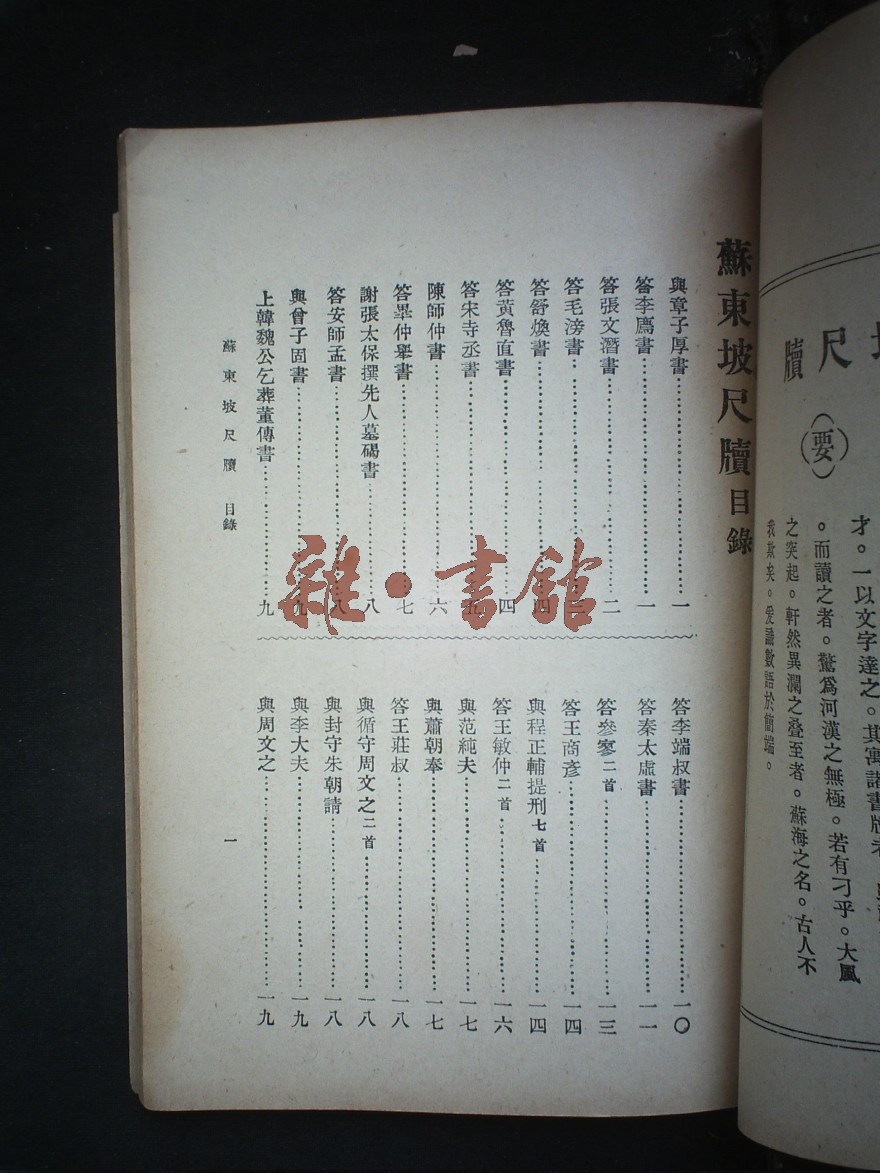 尺牘
（要）
才。一以文字達之。其寓諸書牘者
。而讀之者。驚爲河漢之無極。若有刁乎。大風
之突起。軒然異瀾之叠至者。蘇海之名。古人不
我欺矣。爰識數語於簡端。
蘇東坡尺牘目錄
與章子厚書⋯⋯一
答李廌書⋯⋯一
答張文潛書⋯⋯二
答毛滂書⋯⋯三
答舒煥書⋯⋯四
答黃魯直書⋯⋯四
答宋寺丞書⋯⋯五
陳師仲書⋯⋯六
答畢仲舉書⋯⋯七
謝張太保撰先人墓碣書⋯⋯八
答安師孟書⋯⋯八
與曾子固書⋯⋯九
上韓魏公乞葬董傳書⋯⋯九
答李端叔書⋯⋯一〇
答秦太虛書⋯⋯一一
答參寥二首⋯⋯一三
答王商彥⋯⋯一四
與程正輔提刑七首⋯⋯一四
答王敏仲二首⋯⋯一六
與范純夫⋯⋯一七
與蕭朝奉⋯⋯一七
答王莊叔⋯⋯一八
與循守周文之二首⋯⋯一八
與封守朱朝請⋯⋯一八
與李大夫⋯⋯一九
與周文之⋯⋯一九
蘇東坡尺牘 目錄
一
雜·書館